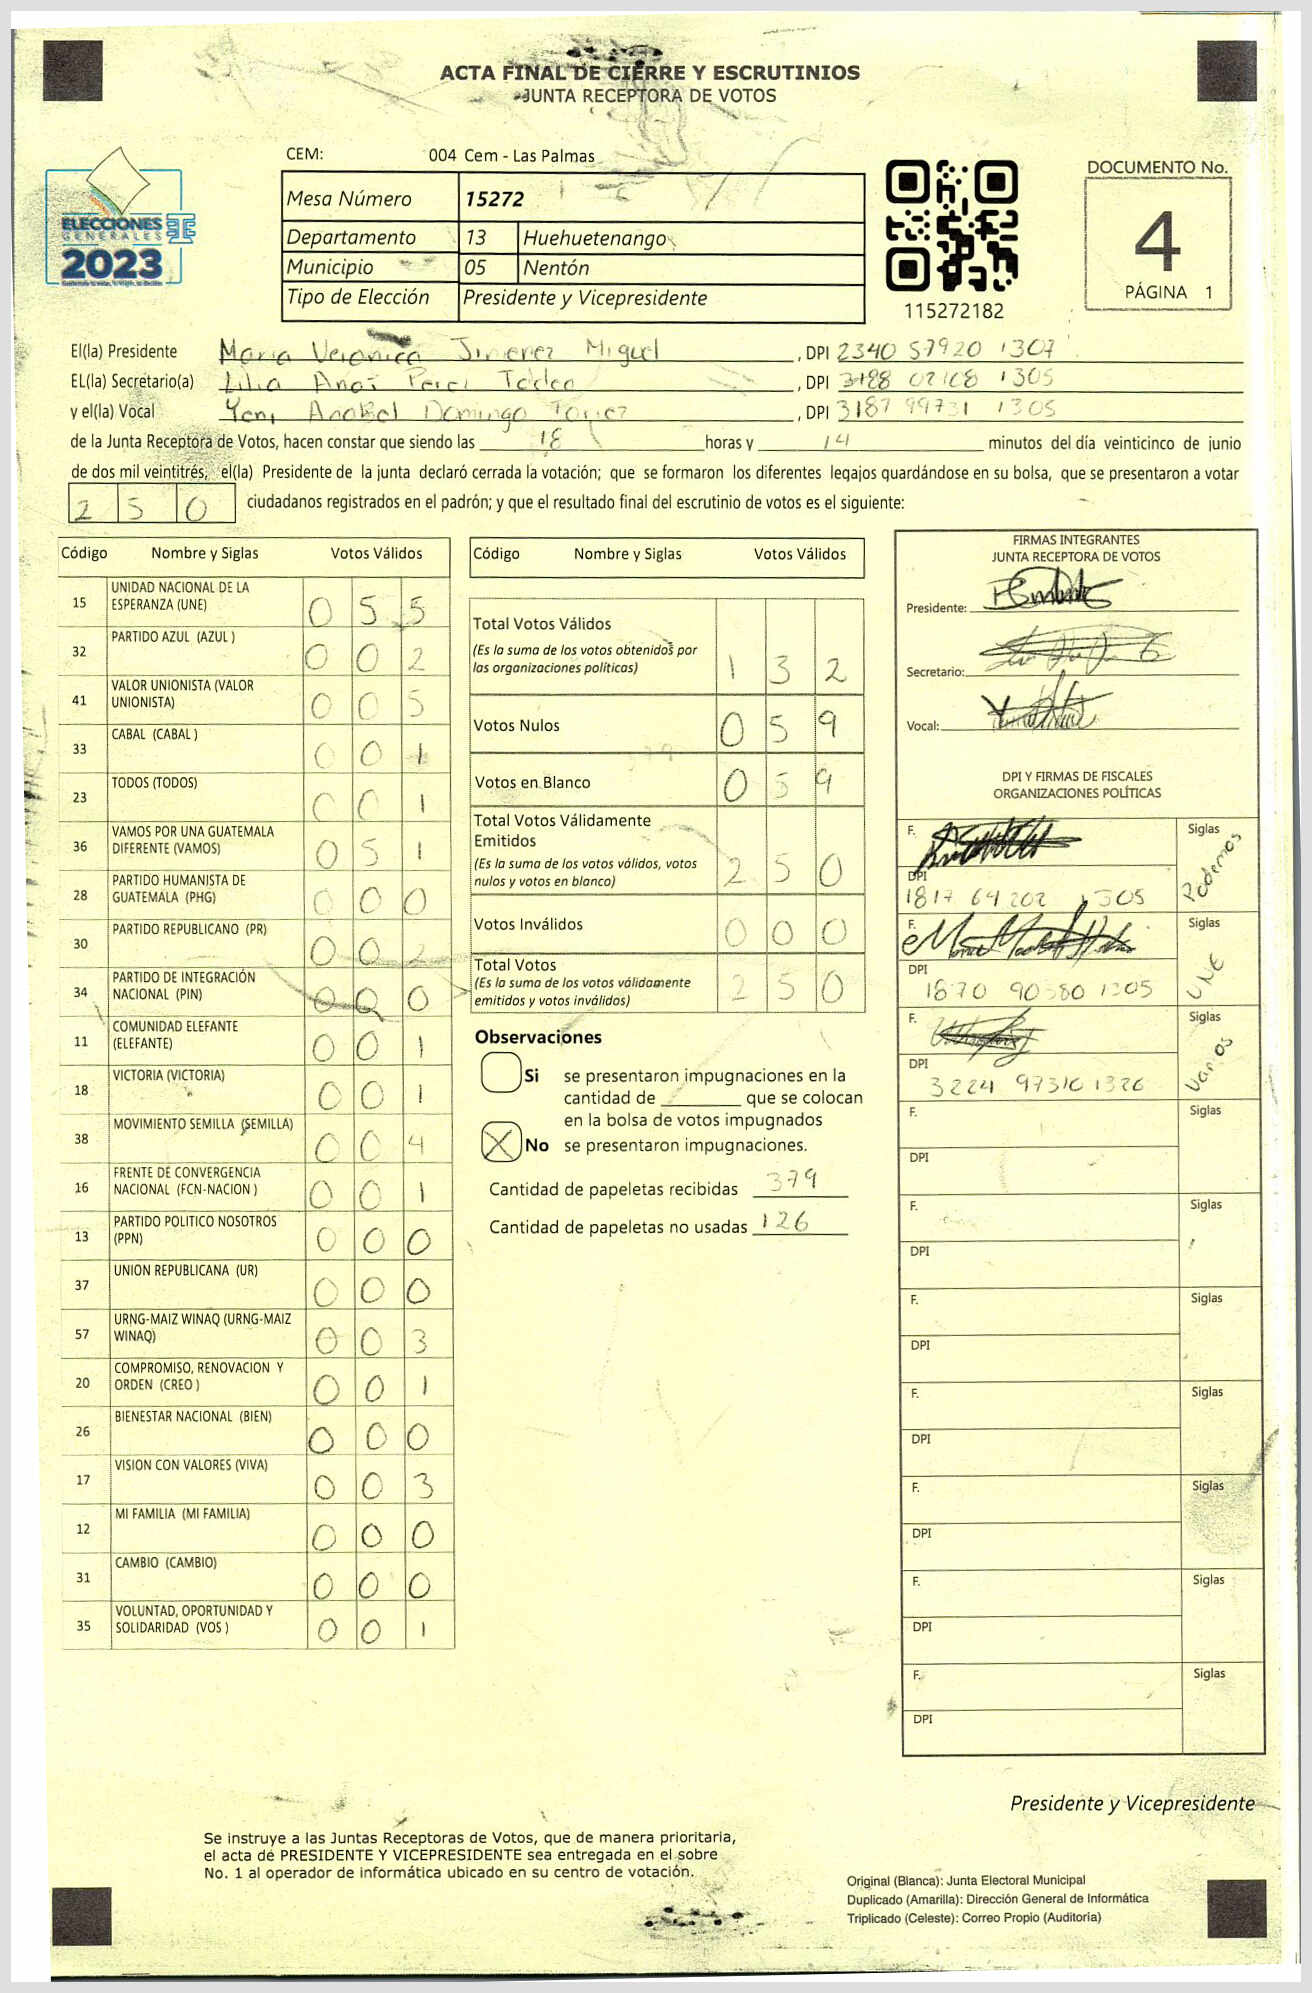 ACTA FINAL DE CIERRE Y ESCRUTINIOS
JUNTA RECEPTORA DE VOTOS
CEM: 004 Cem - Las Palmas
Mesa Número 15272
Departamento 13 Huehuetenango
Municipio 05 Nentón
Tipo de Elección Presidente y Vicepresidente
ELECCIONES
GENERALES
2023
115272182
DOCUMENTO No.
4
PÁGINA 1
El(la) Presidente Maria Veronica Jimenez Miguel, DPI 2340 57920 1307
EL(la) Secretario(a) Lilia Anai Perez, DPI 3188 02168 1305
y el(la) Vocal Yeni Anabel Domingo, DPI 3187 99731 1305
de la Junta Receptora de Votos, hacen constar que siendo las 18 horas y 14 minutos del día veinticinco de junio
de dos mil veintitrés, el(la) Presidente de la junta declaró cerrada la votación; que se formaron los diferentes legajos guardándose en su bolsa, que se presentaron a votar
250 ciudadanos registrados en el padrón; y que el resultado final del escrutinio de votos es el siguiente:
Código Nombre y Siglas Votos Válidos
15 UNIDAD NACIONAL DE LA ESPERANZA (UNE) 055
32 PARTIDO AZUL (AZUL ) 002
41 VALOR UNIONISTA (VALOR UNIONISTA) 005
33 CABAL (CABAL ) 001
23 TODOS (TODOS) 001
36 VAMOS POR UNA GUATEMALA DIFERENTE (VAMOS) 051
28 PARTIDO HUMANISTA DE GUATEMALA (PHG) 000
30 PARTIDO REPUBLICANO (PR) 002
34 PARTIDO DE INTEGRACIÓN NACIONAL (PIN) 000
11 COMUNIDAD ELEFANTE (ELEFANTE) 001
18 VICTORIA (VICTORIA) 001
38 MOVIMIENTO SEMILLA (SEMILLA) 004
16 FRENTE DE CONVERGENCIA NACIONAL (FCN-NACION ) 001
13 PARTIDO POLITICO NOSOTROS (PPN) 000
37 UNION REPUBLICANA (UR) 000
57 URNG-MAIZ WINAQ (URNG-MAIZ WINAQ) 003
20 COMPROMISO, RENOVACION Y ORDEN (CREO ) 001
26 BIENESTAR NACIONAL (BIEN) 000
17 VISION CON VALORES (VIVA) 003
12 MI FAMILIA (MI FAMILIA) 000
31 CAMBIO (CAMBIO) 000
35 VOLUNTAD, OPORTUNIDAD Y SOLIDARIDAD (VOS ) 001
Código Nombre y Siglas Votos Válidos
Total Votos Válidos 132
(Es la suma de los votos obtenidos por
las organizaciones políticas)
Votos Nulos 059
Votos en Blanco 059
Total Votos Válidamente
Emitidos 250
(Es la suma de los votos válidos, votos
nulos y votos en blanco)
Votos Inválidos 000
Total Votos 250
(Es la suma de los votos válidamente
emitidos y votos inválidos)
Observaciones
Si se presentaron impugnaciones en la
cantidad de ________ que se colocan
en la bolsa de votos impugnados
X No se presentaron impugnaciones.
Cantidad de papeletas recibidas 379
Cantidad de papeletas no usadas 126
FIRMAS INTEGRANTES
JUNTA RECEPTORA DE VOTOS
Presidente:
Secretario:
Vocal:
DPI Y FIRMAS DE FISCALES
ORGANIZACIONES POLÍTICAS
F. Siglas Podemos
DPI 1817 64202 1305
F. Siglas UNE
DPI 1870 90380 1305
F. Siglas Vamos
DPI 3224 97310 1326
F. Siglas
DPI
F. Siglas
DPI
F. Siglas
DPI
F. Siglas
DPI
F. Siglas
DPI
F. Siglas
DPI
F. Siglas
DPI
Presidente y Vicepresidente
Se instruye a las Juntas Receptoras de Votos, que de manera prioritaria,
el acta de PRESIDENTE Y VICEPRESIDENTE sea entregada en el sobre
No. 1 al operador de informática ubicado en su centro de votación.
Original (Blanca): Junta Electoral Municipal
Duplicado (Amarilla): Dirección General de Informática
Triplicado (Celeste): Correo Propio (Auditoría)